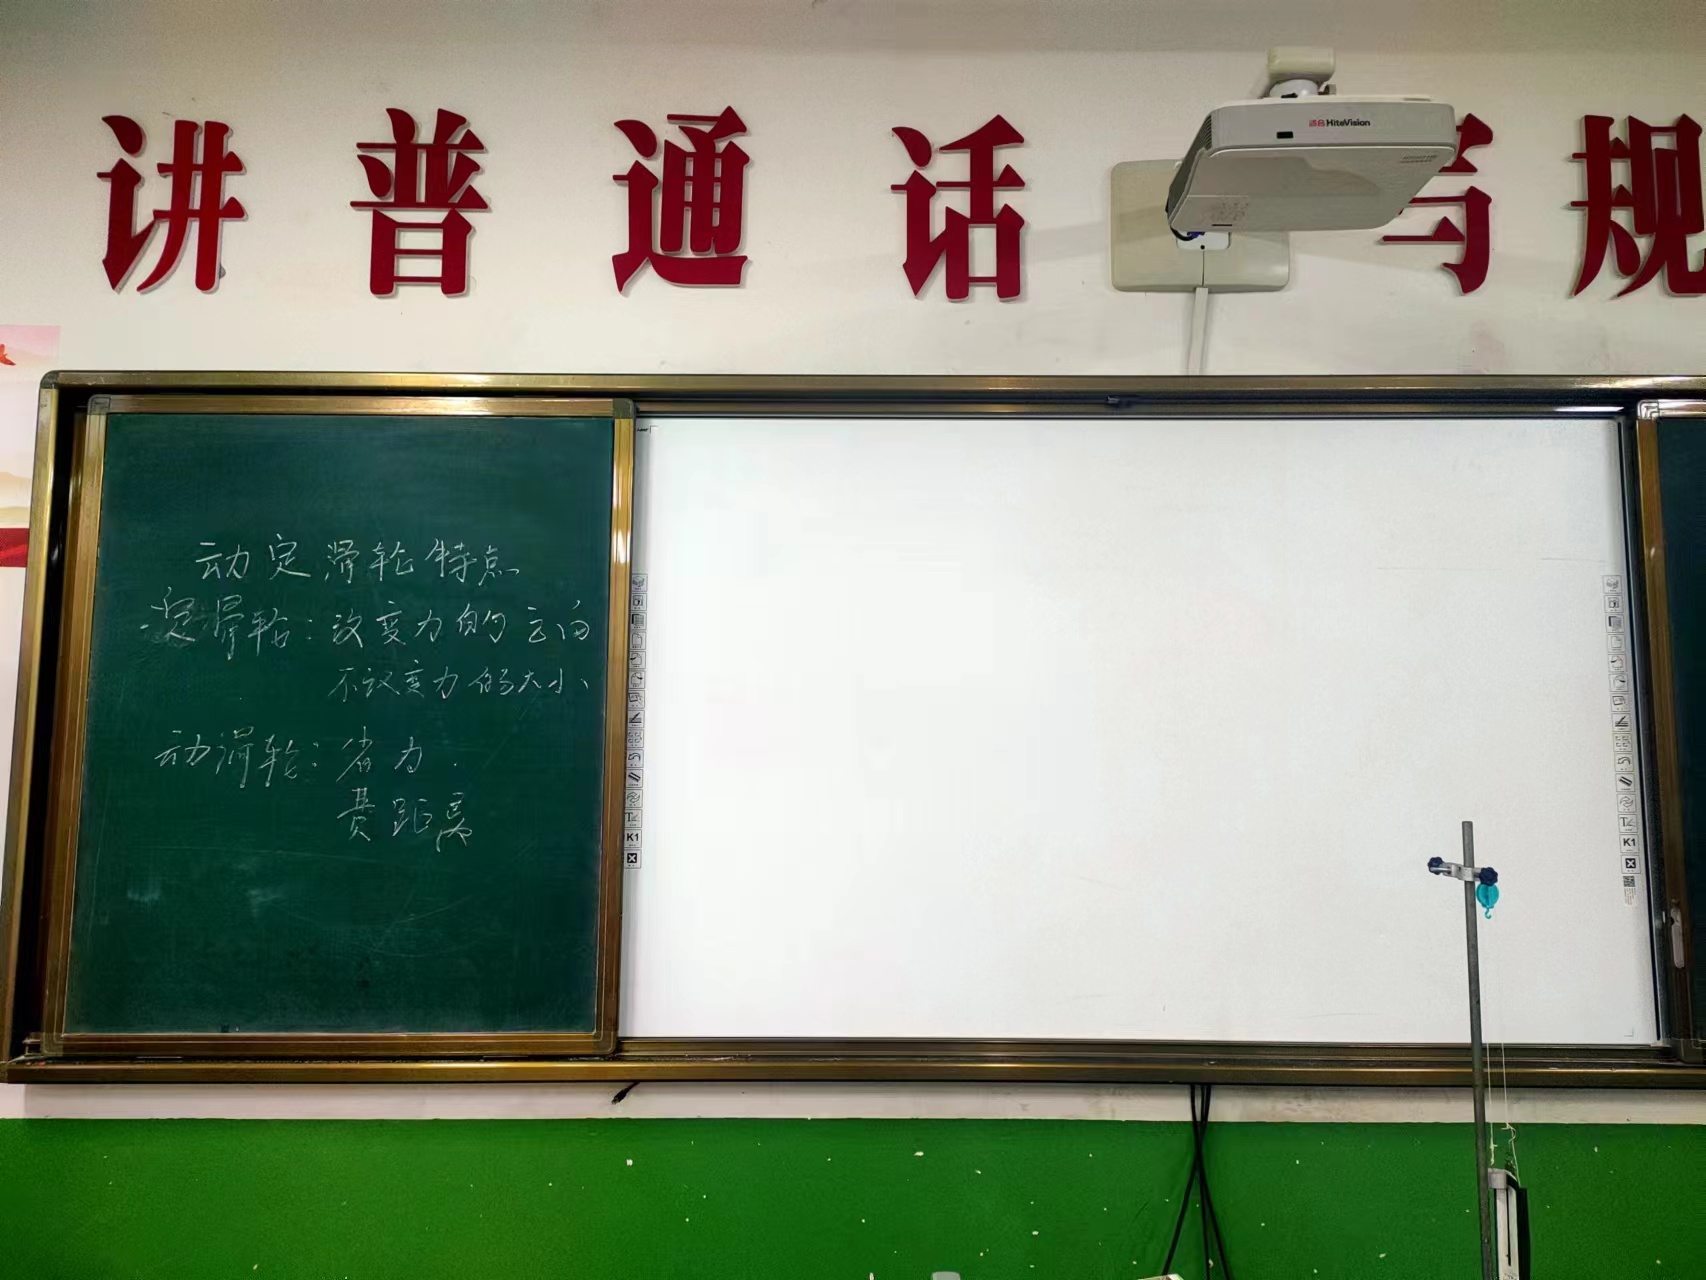 讲普通话 写规
鸿合 HiteVision
动定滑轮特点
定滑轮：改变力的方向
不改变力的大小
动滑轮：省力.
费距离
K1
K1